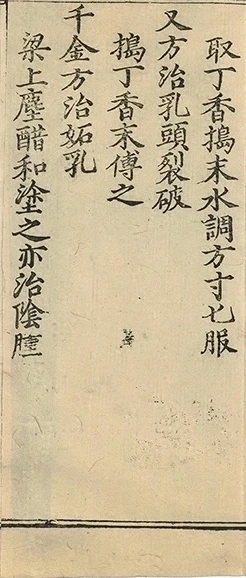 取丁香搗末水調方寸匕服
又方治乳頭裂破
搗丁香末傅之
千金方治妬乳
梁上塵醋和塗之亦治陰腫